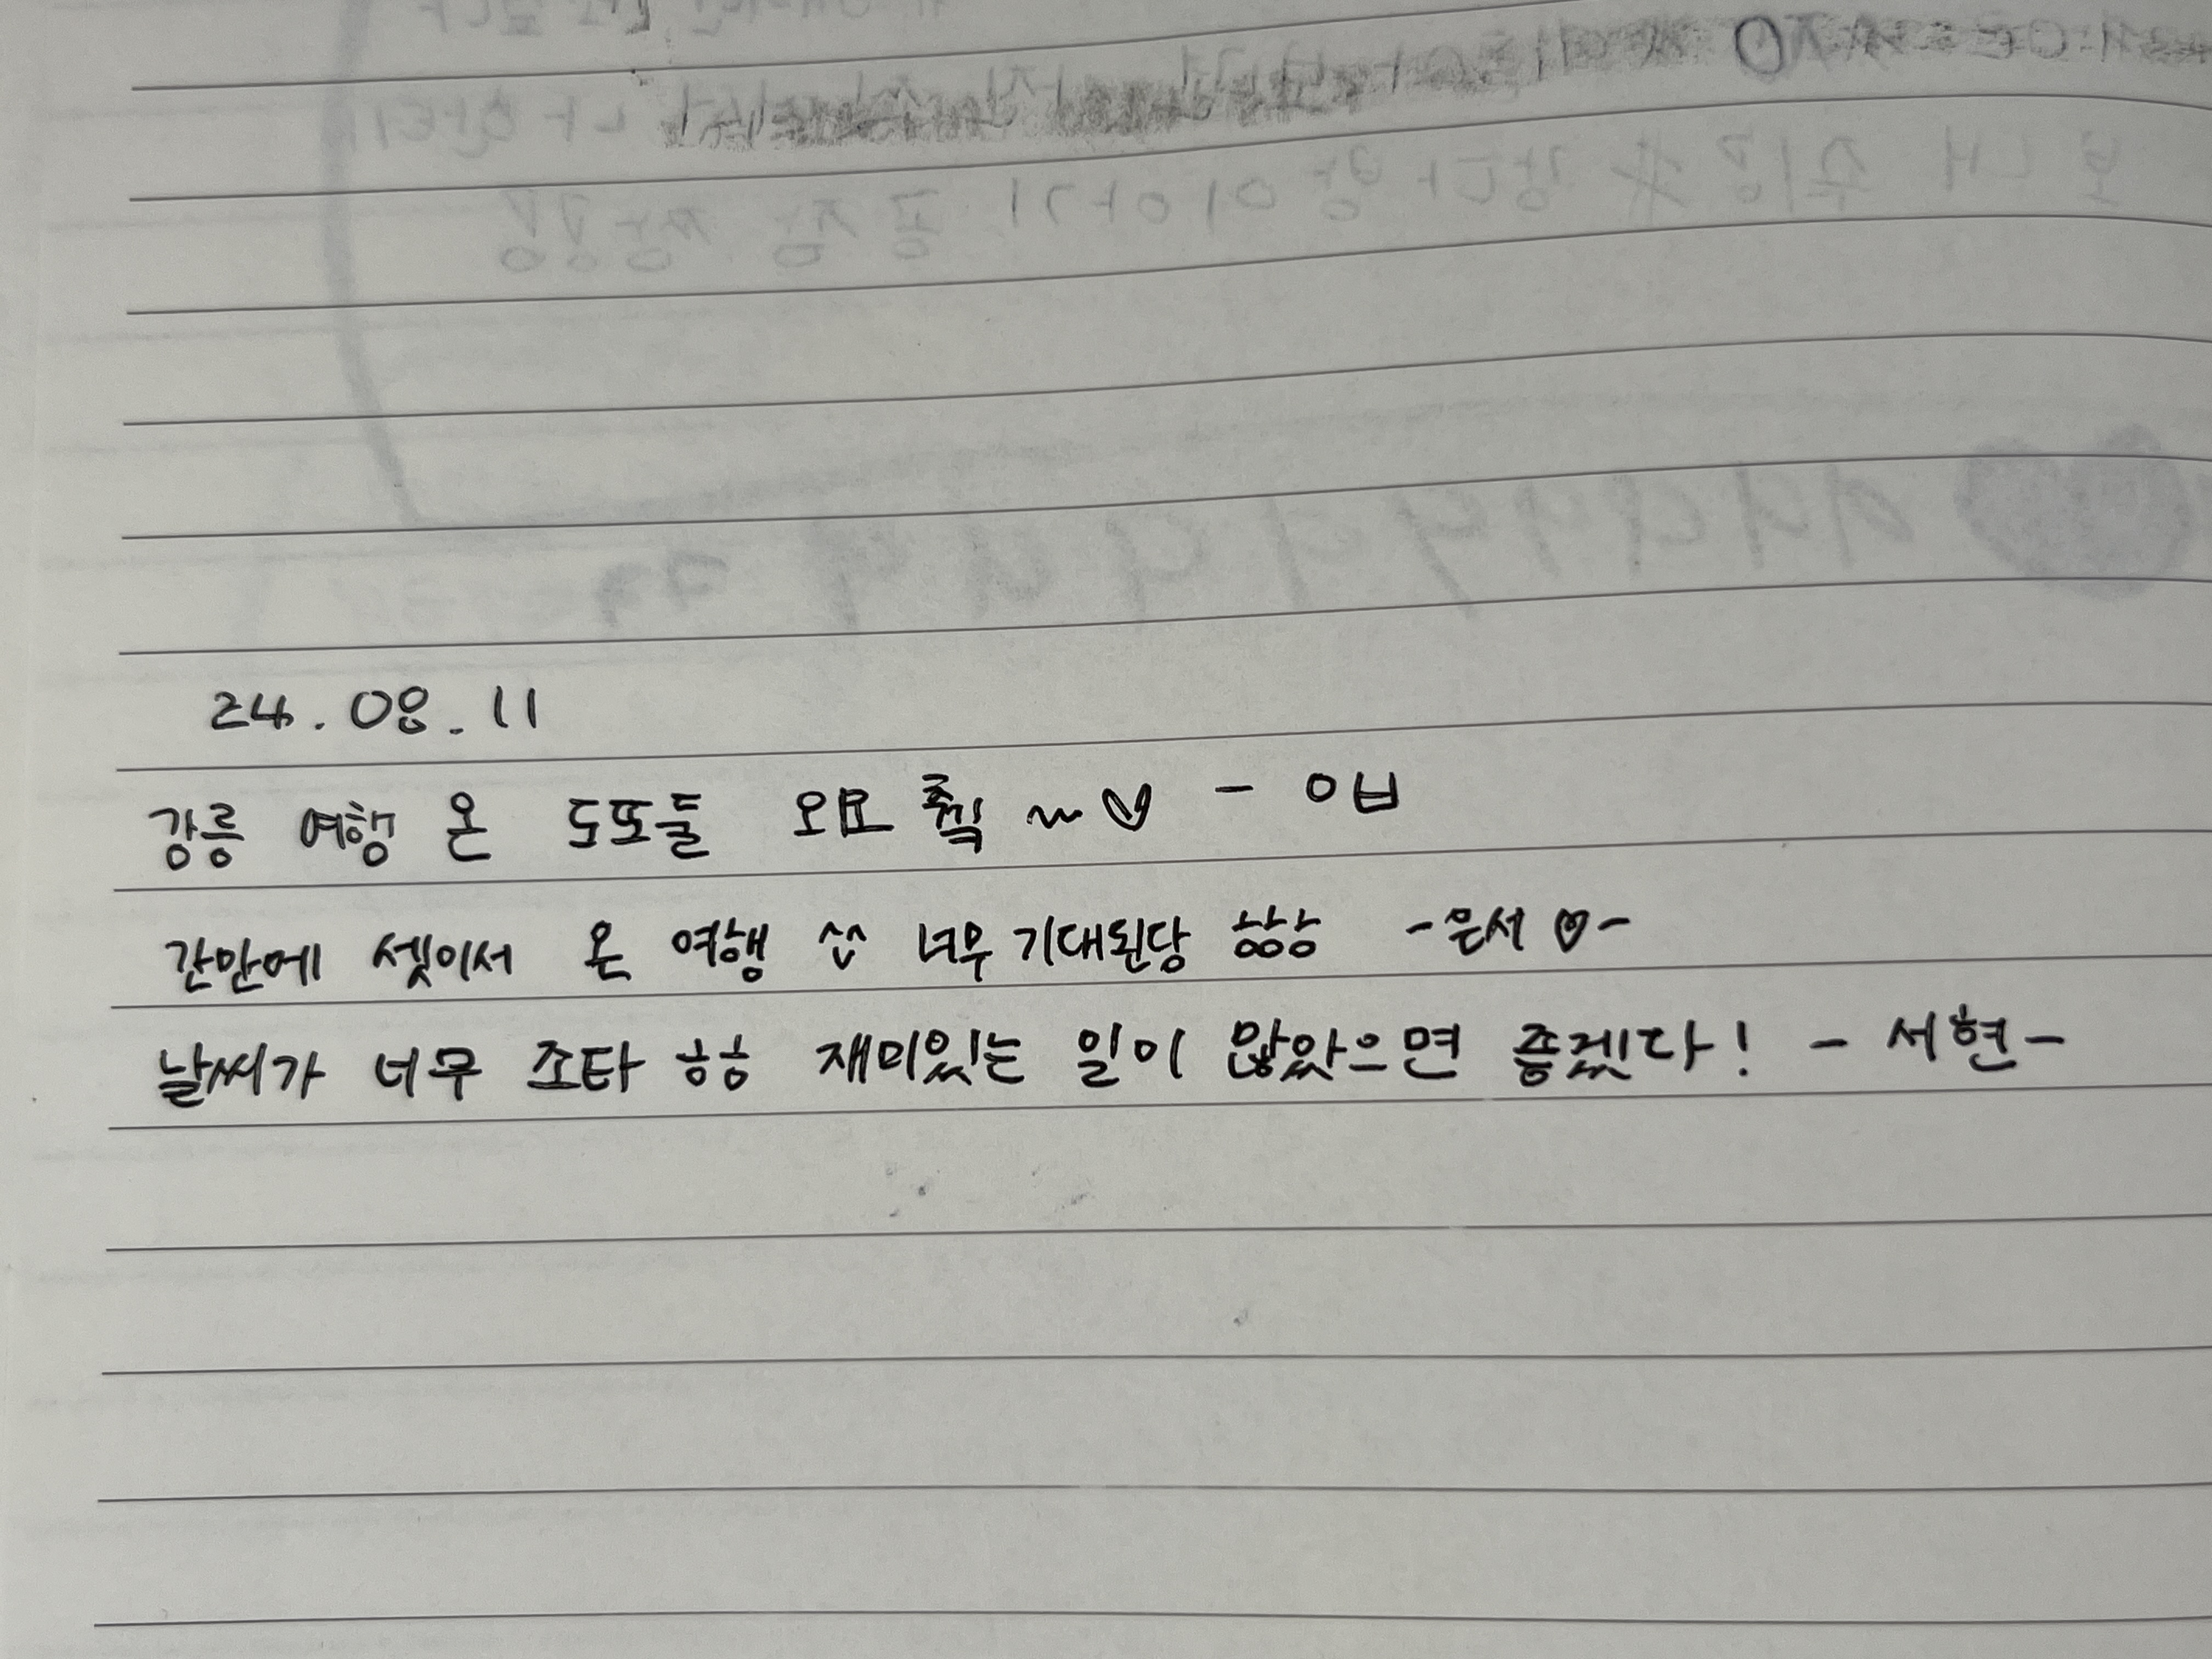 24.08.11
강릉 여행 온 도또들 오묘 췤 ~♡ - ㅇㅂ
간만에 셋이서 온 여행 ^^ 너무 기대된당 ㅎㅎㅎ -은서♡-
날씨가 너무 조타 ㅎㅎ 재미있는 일이 많았으면 좋겠다! - 서현 -